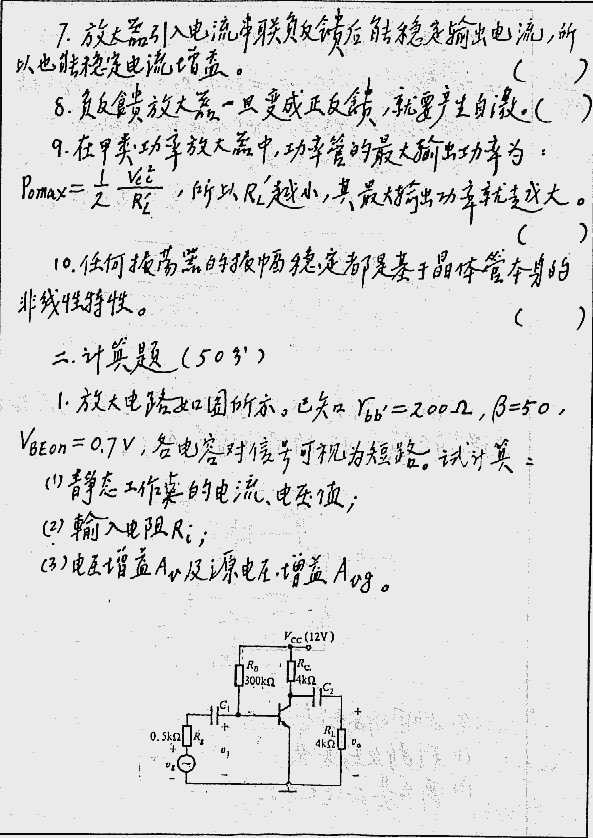 7. 放大器引入电流串联负反馈后能稳定输出电流,所
以也能稳定电流增益。 ( )
8. 负反馈放大器一旦变成正反馈,就要产生自激。( )
9. 在甲类功率放大器中,功率管的最大输出功率为:
Pomax = 1/2 Vcc²/RL′ ,所以RL′越小,其最大输出功率就越大。
( )
10. 任何振荡器的振幅稳定都是基于晶体管本身的
非线性特性。 ( )
二. 计算题 (50分)
1. 放大电路如图所示。已知 rbb′=200Ω, β=50,
VBEon=0.7V, 各电容对信号可视为短路。试计算:
(1) 静态工作点的电流、电压值;
(2) 输入电阻Ri;
(3) 电压增益Av及源电压增益Avg。
VCC (12V)
RB RC
300kΩ 4kΩ
C1 C2
+ +
0.5kΩ Rg RL
+ vi 4kΩ vo
vg
- - -